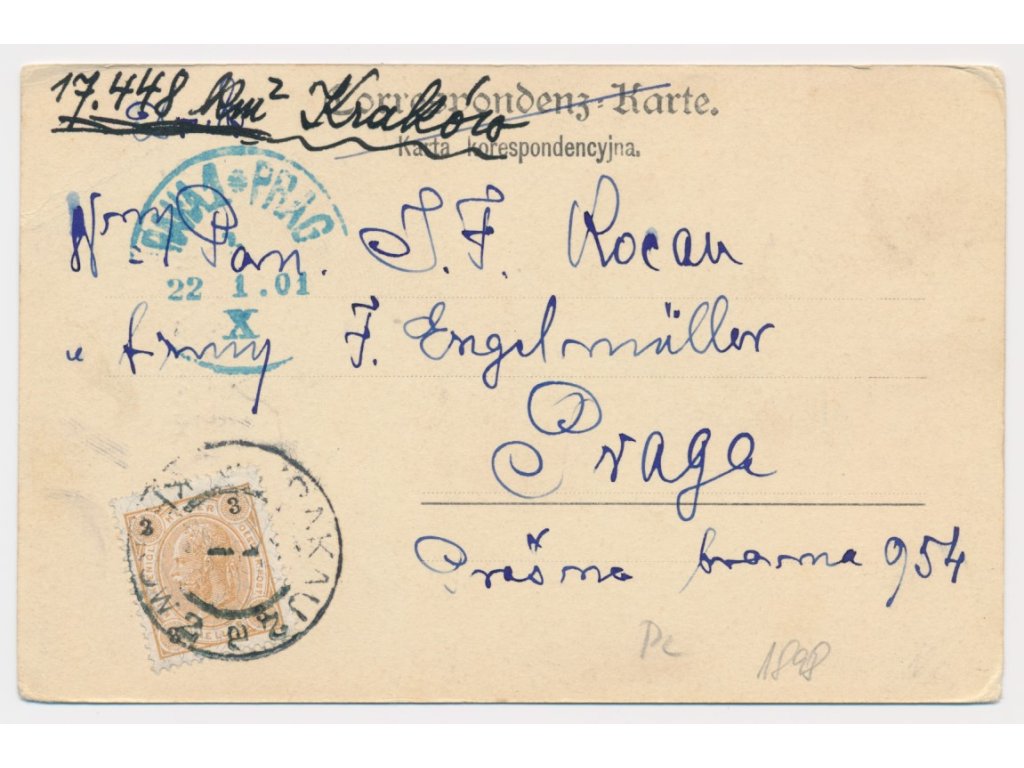 17.448 km² Kraków
Correspondenz-Karte.
Karta korespondencyjna.
PRAG
22 1.01
X
Wny Pan. J. F. Kocan
u firmy F. Engelmüller
Praga
Prašna brama 954
3 3
KRAKAU
Pc
1898